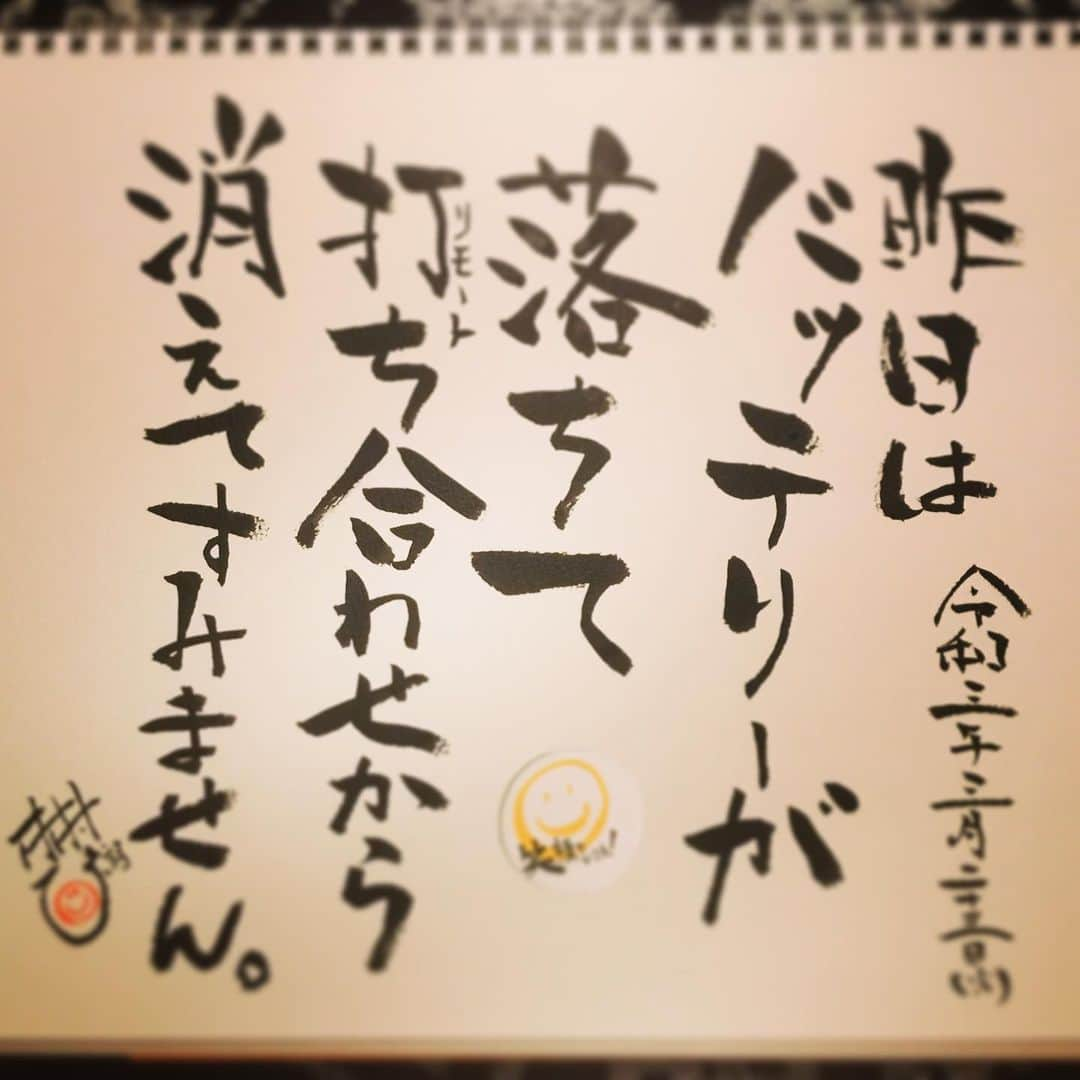 昨日は
令和三年三月二十三日(火)
バッテリーが
落ちて
リモート
打ち合わせから
消えてすみません。